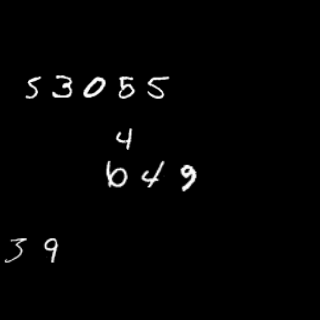 53055
4
649
39